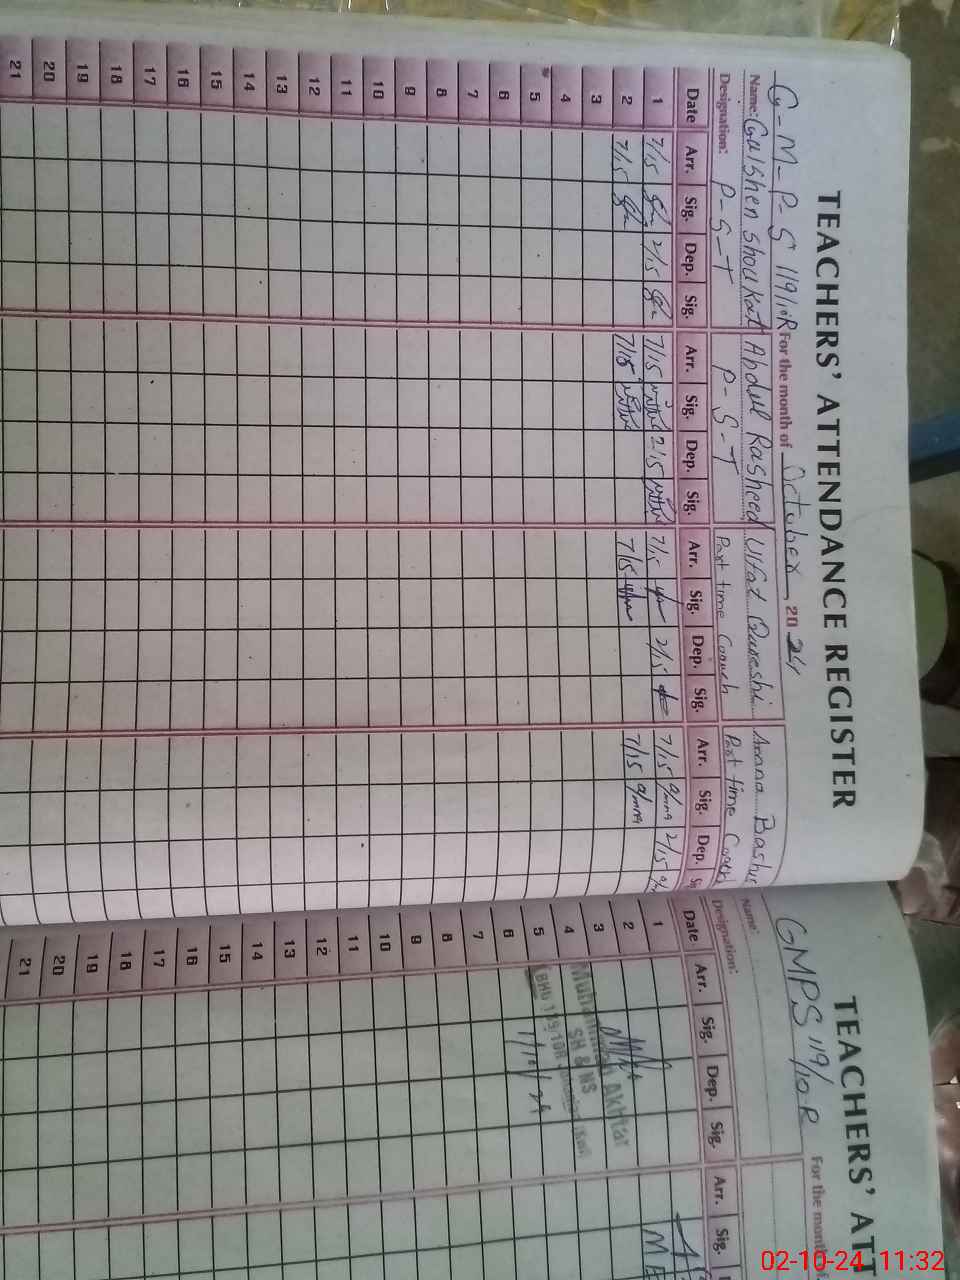 TEACHERS' ATTENDANCE REGISTER
G-M-P-S 119/10R For the month of October 2024
Name: Gulshen Shoukat Abdul Rasheed Ulfat Qureshi Amana Bashir
Designation: P-S-T P-S-T Part time Coauch Part time Coach
Date Arr. Sig. Dep. Sig. Arr. Sig. Dep. Sig. Arr. Sig. Dep. Sig. Arr. Sig. Dep.
1 7/15 2/15 7/15 2/15 7/15 2/15 7/15 2/15
2 7/15 7/15 7/15 7/15
3
4
5
6
7
8
9
10
11
12
13
14
15
16
17
18
19
20
21
TEACHERS' ATT
GMPS 119/10R For the month
Name:
Designation:
Date Arr. Sig. Dep. Sig. Arr. Sig.
1
2
3
4
5
6
7
8
9
10
11
12
13
14
15
16
17
18
19
20
21
Muhammad Akhtar
SH & NS
BHU 119/10R
1/10/24
02-10-24 11:32